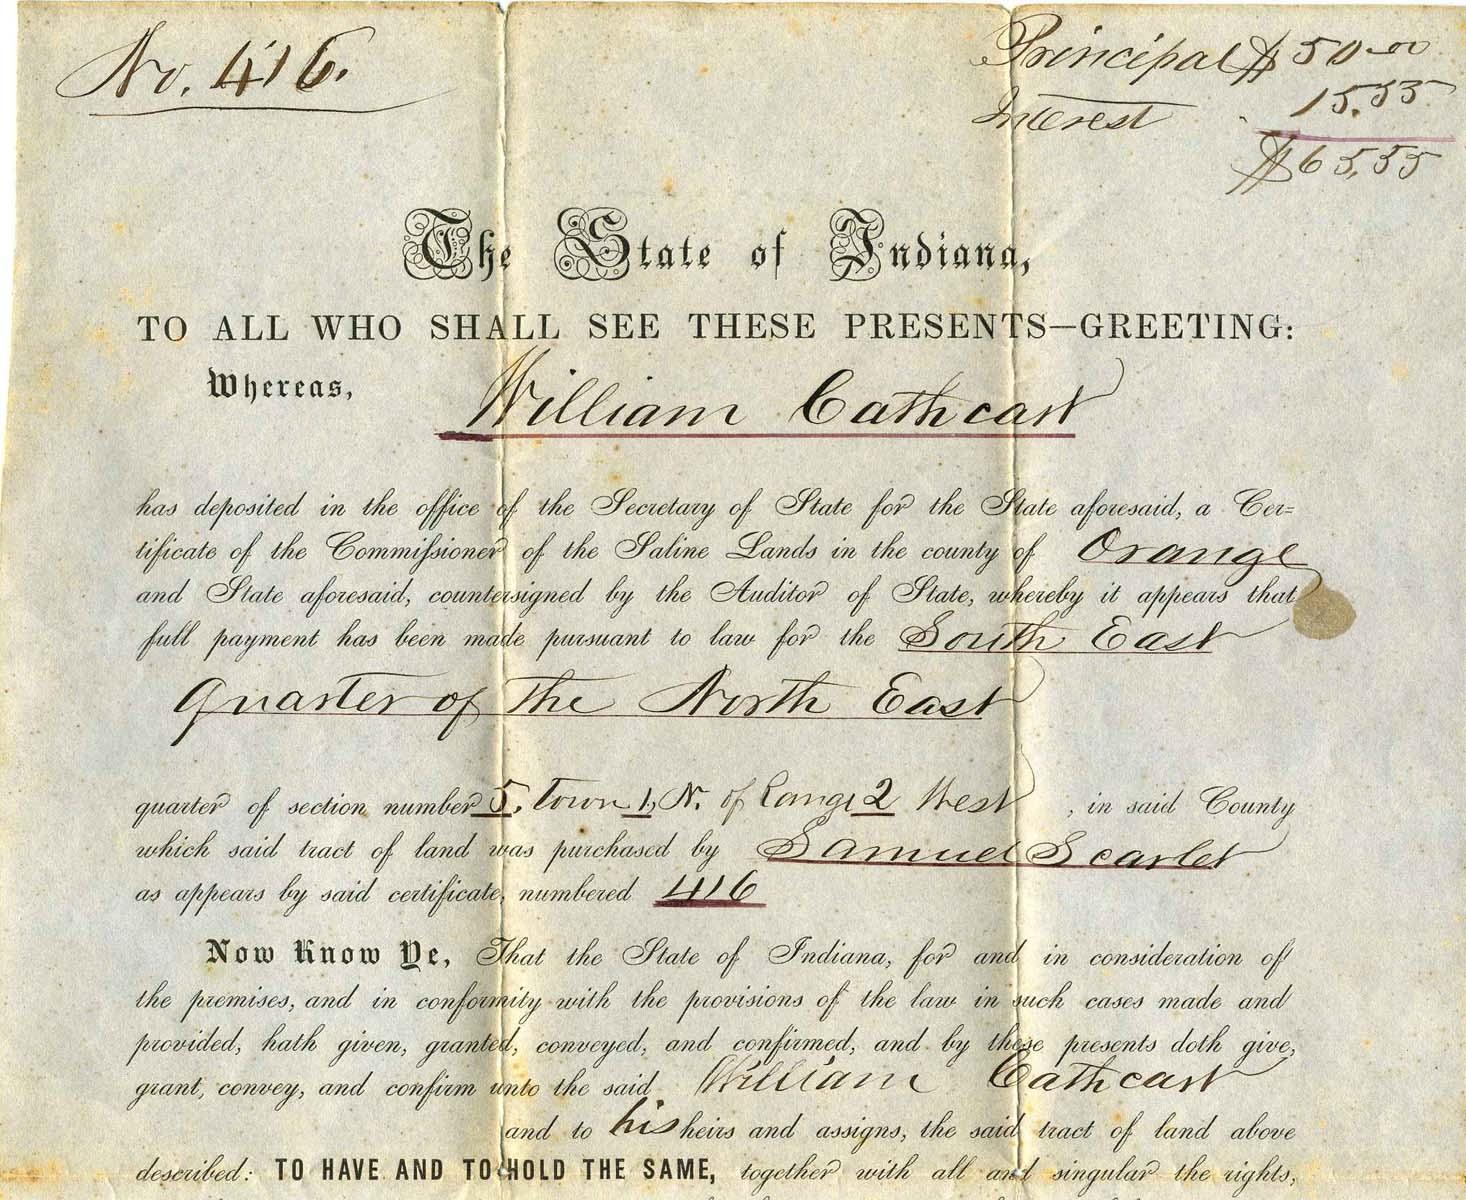 No. 416.
Principal $ 50.00
Interest 15.55
$65.55
The State of Indiana,
TO ALL WHO SHALL SEE THESE PRESENTS—GREETING:
Whereas, William Cathcart
has deposited in the office of the Secretary of State for the State aforesaid, a Cer=
tificate of the Commissioner of the Saline Lands in the county of Orange
and State aforesaid, countersigned by the Auditor of State, whereby it appears that
full payment has been made pursuant to law for the South East
Quarter of The North East
quarter of section number 5, Town 1, N. of Range 2 West , in said County
which said tract of land was purchased by Samuel Scarlet
as appears by said certificate, numbered 416
Now Know Ye, That the State of Indiana, for and in consideration of
the premises, and in conformity with the provisions of the law in such cases made and
provided, hath given, granted, conveyed, and confirmed, and by these presents doth give,
grant, convey, and confirm unto the said William Cathcart
and to his heirs and assigns, the said tract of land above
described: TO HAVE AND TO HOLD THE SAME, together with all and singular the rights,